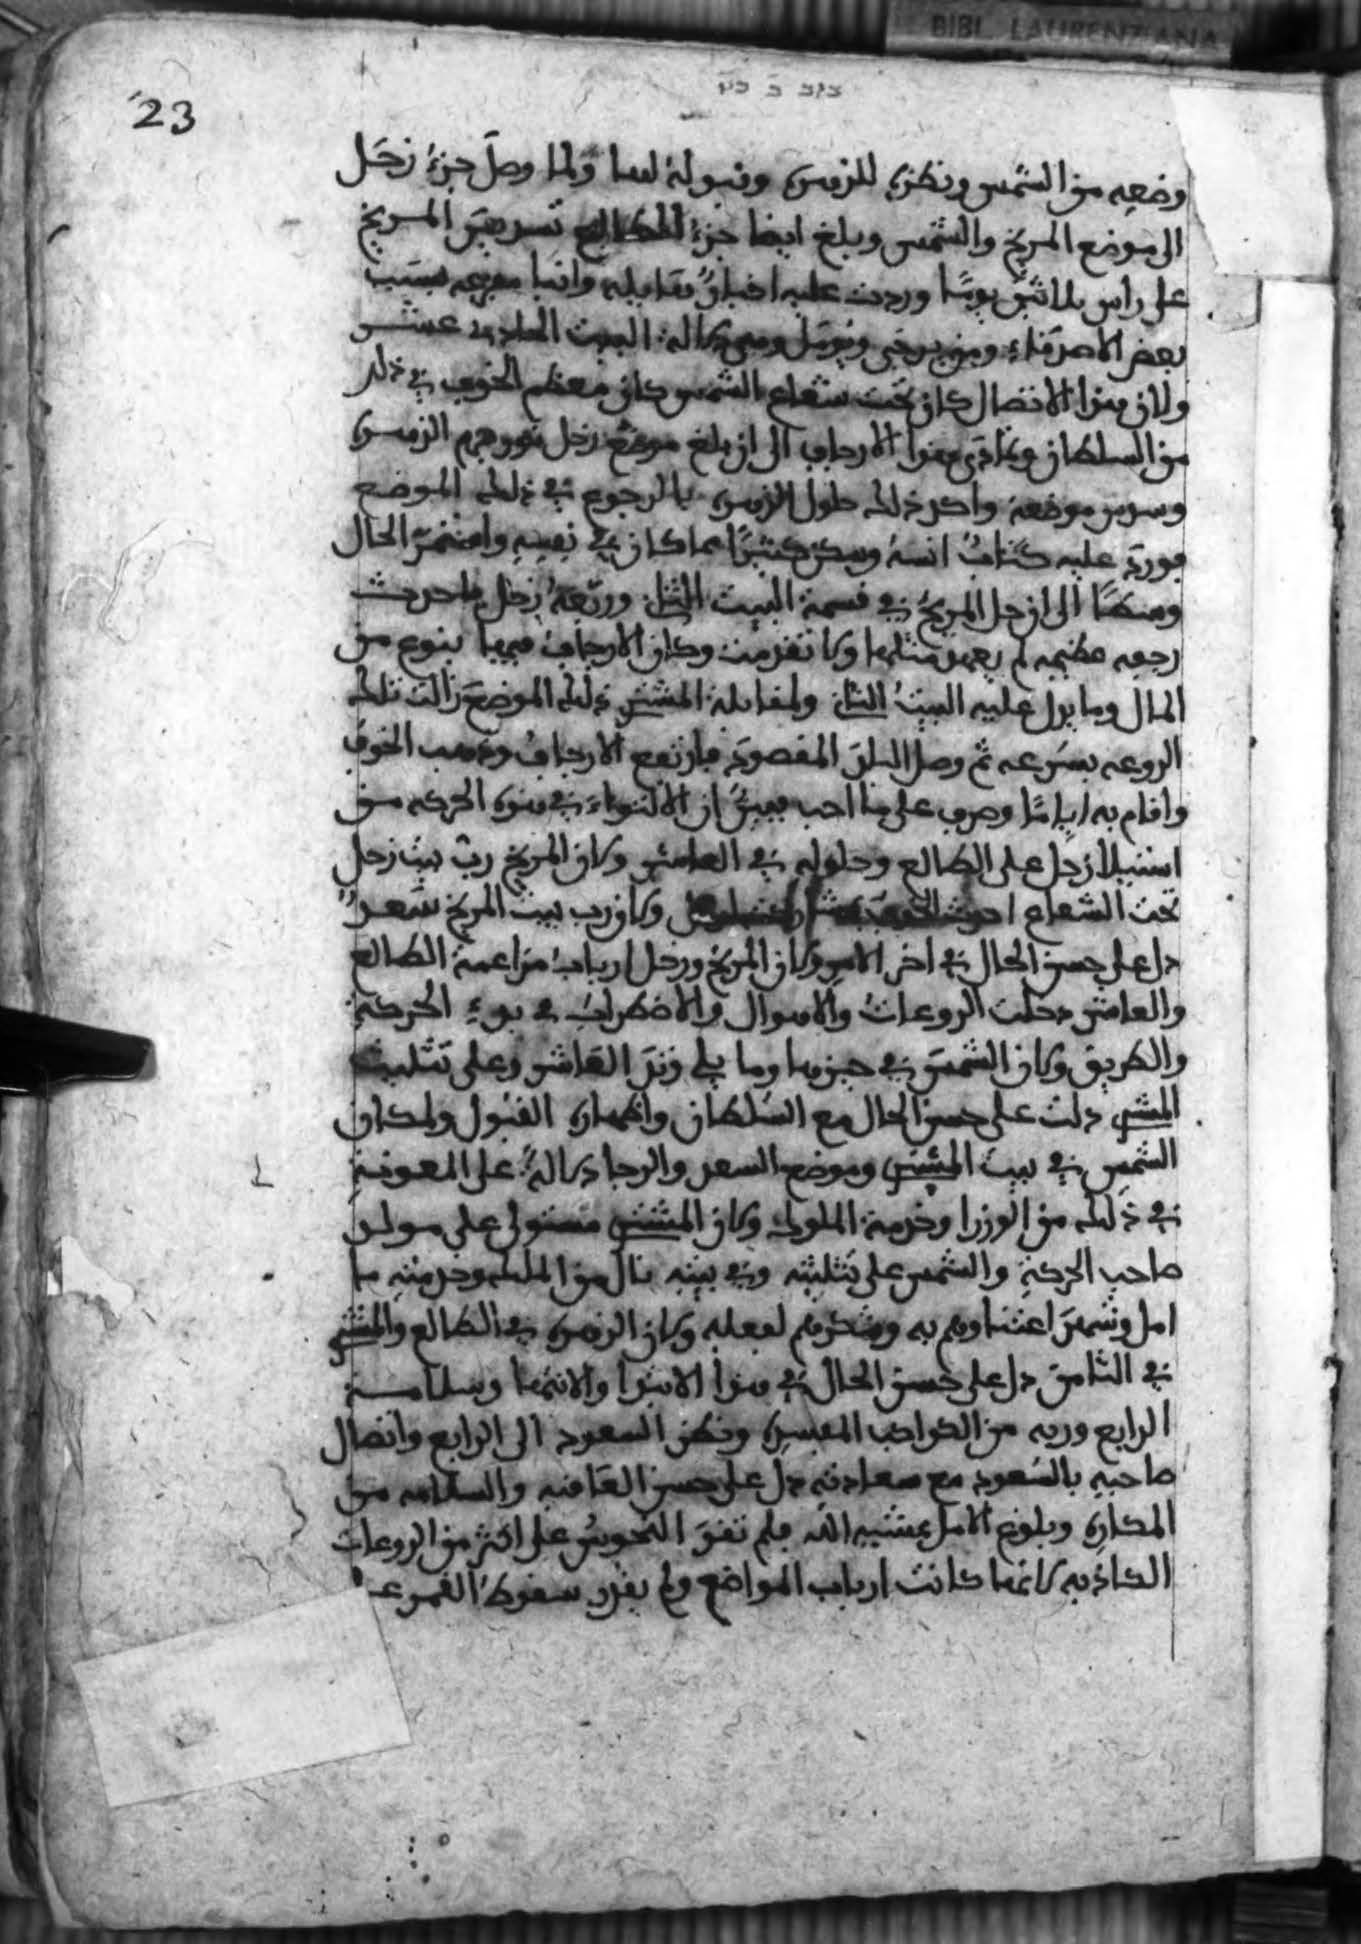 BIBL. LAURENZIANA
23
وضعه من الشمس ونظره للزهره وقبوله لها ولما وصل جزء زحل
الى موضع المريخ والشمس وبلغ ايضا جزء الطالع تسديس المريخ
على راس ثلاثين يومًا وردت عليه اخبارٌ مقابله وانبا مفزعه بسبب
بعض الاصدقاء ومن يرجى ويؤمل وهي دلالة البيت الحادي عشر
ولان هذا الاتصال كان تحت شعاع الشمس كان معظم الخوف في ذلك
من السلطان وتمادى هذا الارجاف الى ان بلغ موضع زحل الزهرة
موضعه ذلك حلول الزهره بالرجوع في ذلك الموضع
فورد عليه كتابٌ انسهُ وسكن كثيرًا مما كان في نفسه الحال
الى ان حل المريخ في قسمة البيت الثاني زحل فاحدث
رجعه عظيمه لم يعهد مثلها ولا تقدمت وكان الارجاف فيها بنوع من
المال وما يدل عليه البيت الثاني ولمقابلة المشتري ذلك الموضع زالت تلك
الروعه بسرعه ثم وصل البلد المقصود فارتفع الارجاف وذهب الخوف
واقام به ايامًا وصرف على ما احب فبين ان الالتواء في هذه الحركه من
استيلا زحل على الطالع وحلوله في العاشر وكان المريخ رب بيت زحل
تحت الشعاع وكان رب بيت المريخ سعدٌ
دل على حسن الحال في اخر الامر وكان المريخ وزحل ارباب مزاعمة الطالع
والعاشر دخلت الروعات والاهوال والاضطراب في بدء الحركة
والطريق وكان الشمس في حيزها وما يلي وتد العاشر وعلى تثليث
المشتري دلت على حسن الحال مع السلطان واظهاره القبول ولمكان
الشمس في بيت المشتري وموضع السعد والرجا دلالةً على المعونة
في ذلك من الوزرا وخدمة الملوك وكان المشتري مستولي على مولد
صاحب الحركة والشمس على تثليثه وفي بيته نال من الملك وخدمته ما
امل اعتناوهم به وشكرهم لفعله وكان الزهره في الطالع والمشتري
في الثامن دل على حسن الحال في هذا الابتدا والانتها وسلامة
الرابع وربه من الكواكب المفسده ونظر السعود الى الرابع واتصال
صاحبه بالسعود مع سعادته دل على حسن العاقبه والسلامه من
المكاره وبلوغ الامل بمشيه الله فلم تقو النحوس على اكثر من الروعات
الكاذبه لانها كانت ارباب المواضع ولم يقدر سقوط القمر عن